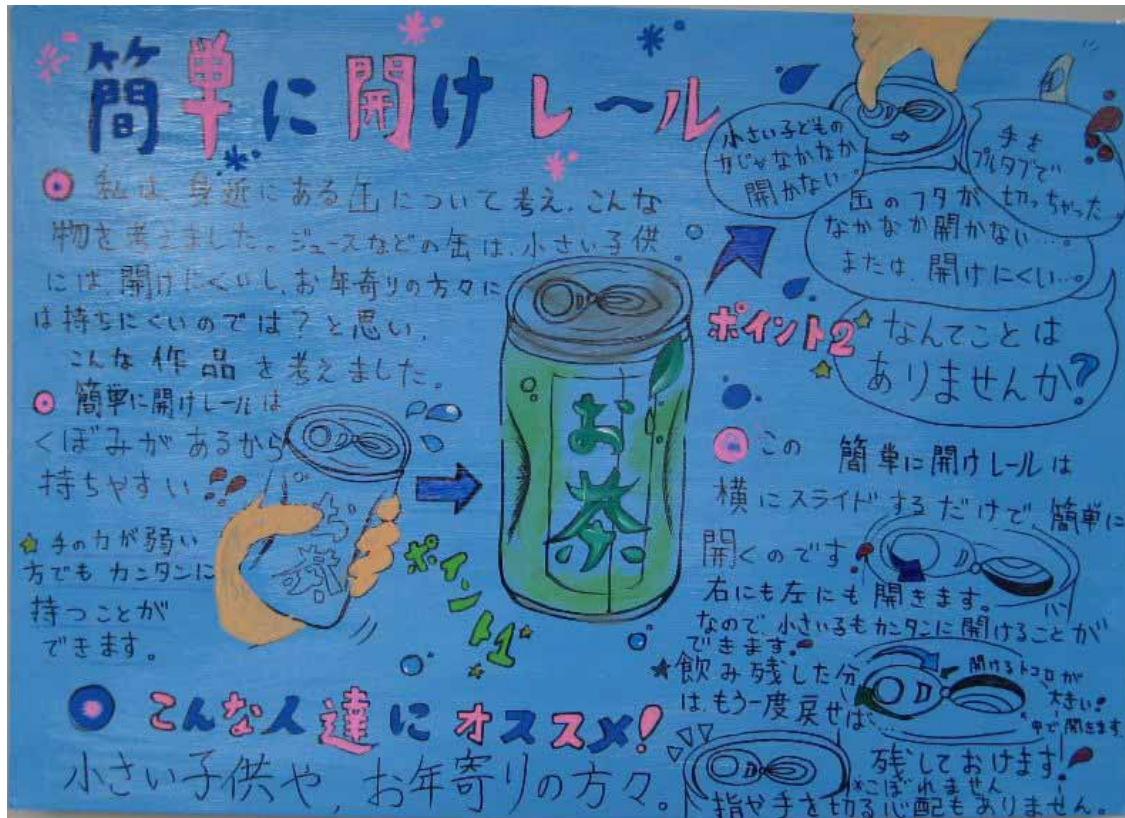 簡単に開けレール
私は身近にある缶について考え、こんな
物を考えました。ジュースなどの缶は、小さい子供
には開けにくいし、お年寄りの方々に
は持ちにくいのでは?と思い、
こんな作品を考えました。
簡単に開けレールは
くぼみがあるから
持ちやすい!!
★手の力が弱い
方でもカンタンに
持つことが
できます。
お茶
ポイント1
お茶
小さい子どもの
力じゃなかなか
開かない…
手を
プルタブで
切っちゃった。
缶のフタが
なかなか開かない…。
または、開けにくい…。
なんてことは
ありませんか?
ポイント2
この 簡単に開けレールは
横にスライドするだけで、簡単に
開くのです!
右にも左にも開きます。
なので、小さい子もカンタンに開けることが
できます。
★飲み残した分
は、もう一度戻せば…
開けるトコロが
大きい!
中で開きます
残しておけます!
※こぼれません
指や手を切る心配もありません。
こんな人達にオススメ!
小さい子供や、お年寄りの方々。